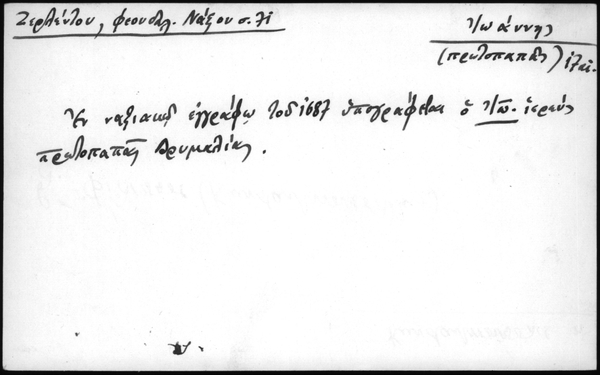 Ζερλέντου, φεουδαλ. Νάξου σ. 71
Ἰωάννης
(πρωτοπαπᾶς) ιζ αἰ.
Ἐν ναξιακῷ ἐγγράφῳ τοῦ 1687 ὑπογράφεται ὁ Ἰω. ἱερεύς
πρωτοπαπᾶς Δρυμαλίας.